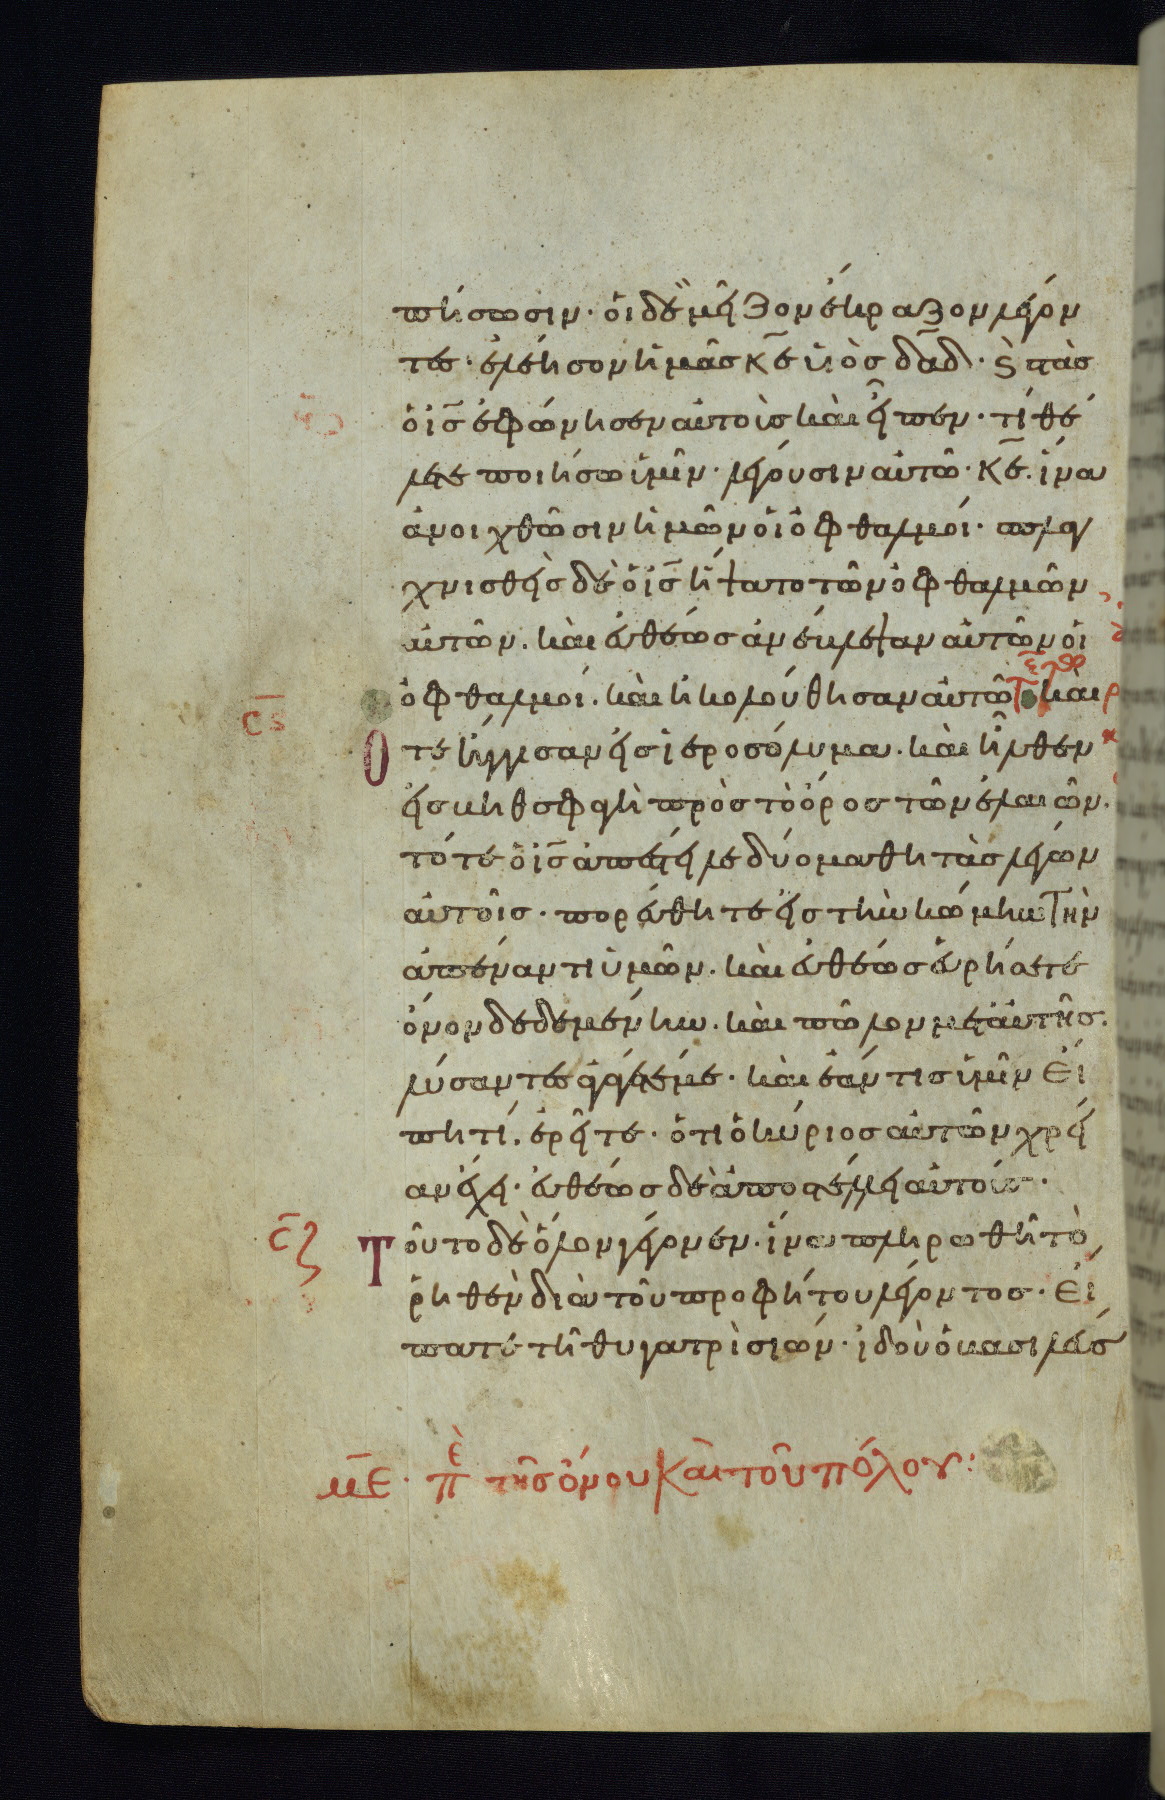 πήσωσιν· οἱ δὲ μεῖζον ἔκραζον λέγον
τες· ἐλέησον ἡμᾶς κ̅ε̅ υἱὸς δ̅α̅δ̅· ϗ στὰς
ὁ ι̅ς̅ ἐφώνησεν αὐτοὺς καὶ εἶπεν· τί θέ
λετε ποιήσω ὑμῖν· λέγουσιν αὐτῶ· κ̅ε̅. ἵνα
ἀνοιχθῶσιν ἡμῶν οἱ ὀφθαλμοί· σπλαγ
χνισθεὶς δὲ ὁ ι̅ς̅ ἥψατο τῶν ὀφθαλμῶν
αὐτῶν. καὶ εὐθέως ἀνέβλεψαν αὐτῶν οἱ
ὀφθαλμοί. καὶ ἠκολούθησαν αὐτῶ· καὶ
σ̅ϛ̅
ὅτε ἤγγισαν εἰς ἱεροσόλυμα. καὶ ἦλθεν
εἰς βηθσφαγὴ πρὸς τὸ ὄρος τῶν ἐλαιῶν.
τότε ὁ ι̅ς̅ ἀπέστειλε δύο μαθητὰς λέγων
αὐτοῖς· πορεύθητε εἰς τὴν κώμην τὴν
ἀπέναντι ὑμῶν. καὶ εὐθέως εὑρήσετε
ὄνον δεδεμένην. καὶ πῶλον μετ' αὐτῆς.
λύσαντες ἀγάγετέ μοι· καὶ ἐάν τις ὑμῖν εἴ
πῃ τί. ἐρεῖτε· ὅτι ὁ κύριος αὐτῶν χρεί
αν ἔχει· εὐθέως δὲ ἀποστέλλει αὐτούς·
σ̅ζ̅
Τοῦτο δὲ ὅλον γέγονεν. ἵνα πληρωθῆ τὸ
ῥηθὲν διὰ τοῦ προφήτου λέγοντος· Εἴ
πατε τῆ θυγατρὶ σιών· ἰδοὺ ὁ βασιλεύς
μ̅ε̅· πε τῆς ὄνου καὶ τοῦ πόλου: